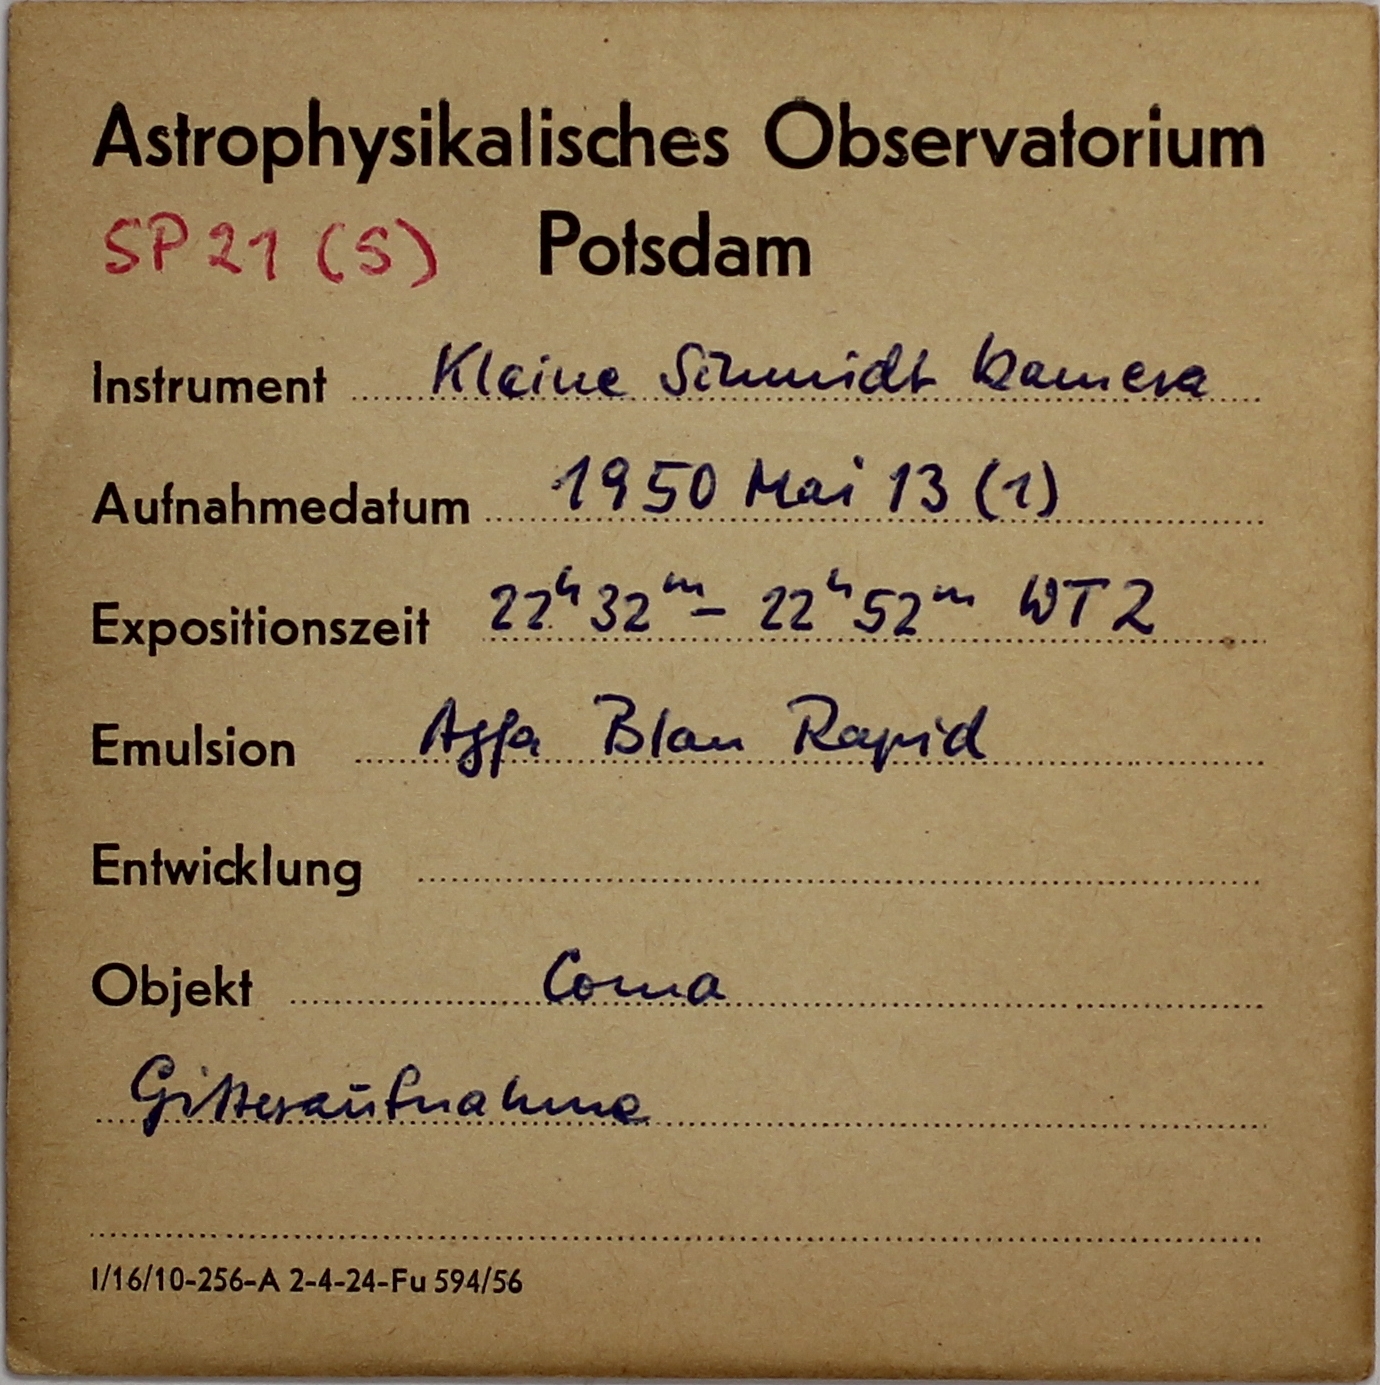 Astrophysikalisches Observatorium
SP21 (S) Potsdam
Instrument Kleine Schmidt Kamera
Aufnahmedatum 1950 Mai 13 (1)
Expositionszeit 22h 32m - 22h 52m WTZ
Emulsion Agfa Blau Rapid
Entwicklung
Objekt Coma
Gitteraufnahme
I/16/10-256-A 2-4-24-Fu 594/56